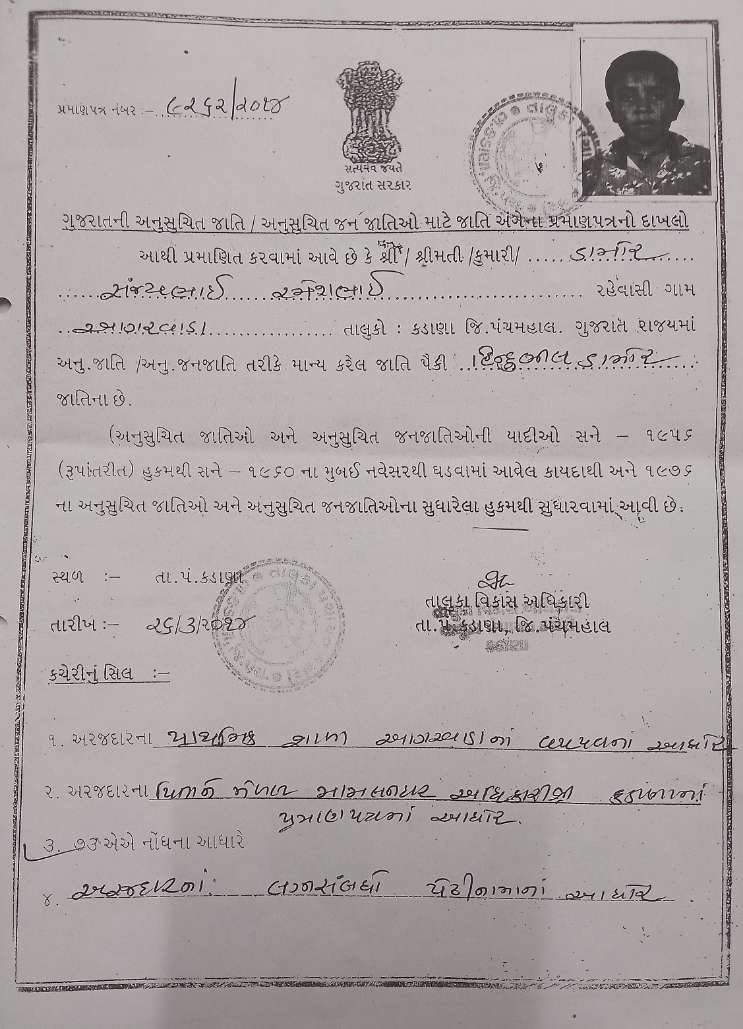 પ્રમાણપત્ર નંબર :- ૯૨૬૨/૨૦૧૪
સત્યમેવ જયતે
ગુજરાત સરકાર
ગુજરાતની અનુસુચિત જાતિ / અનુસુચિત જન જાતિઓ માટે જાતિ અંગેના પ્રમાણપત્રનો દાખલો
આથી પ્રમાણિત કરવામાં આવે છે કે શ્રી / શ્રીમતી /કુમારી/ ..... ડામોર
સંજયભાઈ રમેશભાઈ ..... રહેવાસી ગામ
આગરવાડા ..... તાલુકો : કડાણા જિ.પંચમહાલ. ગુજરાત રાજયમાં
અનુ.જાતિ /અનુ.જનજાતિ તરીકે માન્ય કરેલ જાતિ પૈકી હિન્દુભીલ ડામોર
જાતિના છે.
(અનુસુચિત જાતિઓ અને અનુસુચિત જનજાતિઓની યાદીઓ સને – ૧૯૫૬
(રૂપાંતરીત) હુકમથી સને – ૧૯૬૦ ના મુબઈ નવેસરથી ઘડવામાં આવેલ કાયદાથી અને ૧૯૭૬
ના અનુસુચિત જાતિઓ અને અનુસુચિત જનજાતિઓના સુધારેલા હુકમથી સુધારવામાં આવી છે.
સ્થળ :– તા.પં.કડાણા
તાલુકા વિકાસ અધિકારી
તારીખ:– ૨૬/૩/૨૦૧૪
તા.પં.કડાણા, જિ.પંચમહાલ
કચેરીનું સિલ :–
૧. અરજદારના પ્રાથમિક શાળા આગરવાડાનાં આધારે
૨. અરજદારના પિતાને મળેલ મામલતદાર અધિકારીશ્રી કડાણાનાં
પ્રમાણપત્રનાં આધારે.
૩. ૭૩એએ નોંધના આધારે
૪. અરજદારનાં પેઢીનામાનાં આધારે